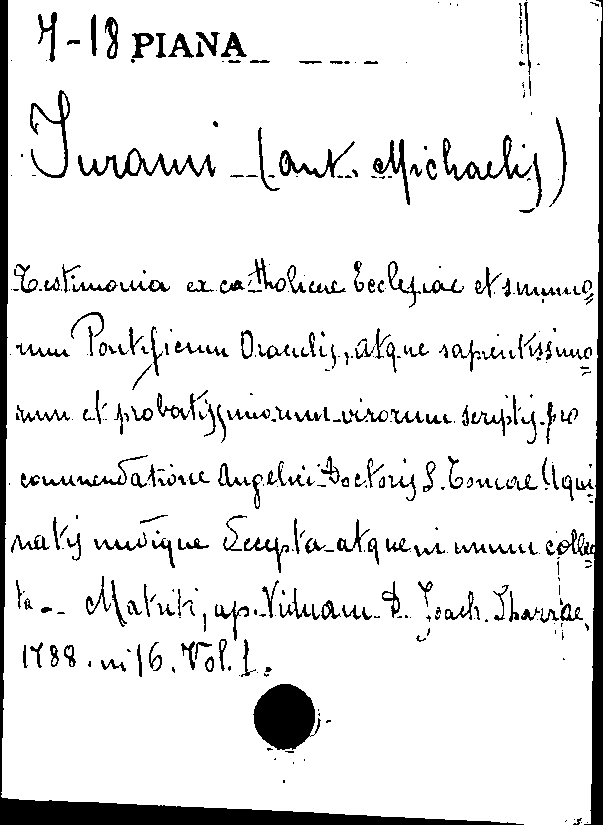 7-18 PIANA
Jurami (ant. Michaelis)
Testimonia ex catholicae Ecclesiae et summo=
rum Pontificum Oraculis, atque sapientissimo=
rum et probatissimorum virorum scriptis pro
commendatione Angelici Doctoris S. Tomae Aqui=
natis undique decepta atque in unum collec=
ta.. Matriti, ap. Viduam D. Joach. Ibarrae,
1788. in 16. Vol. 1.